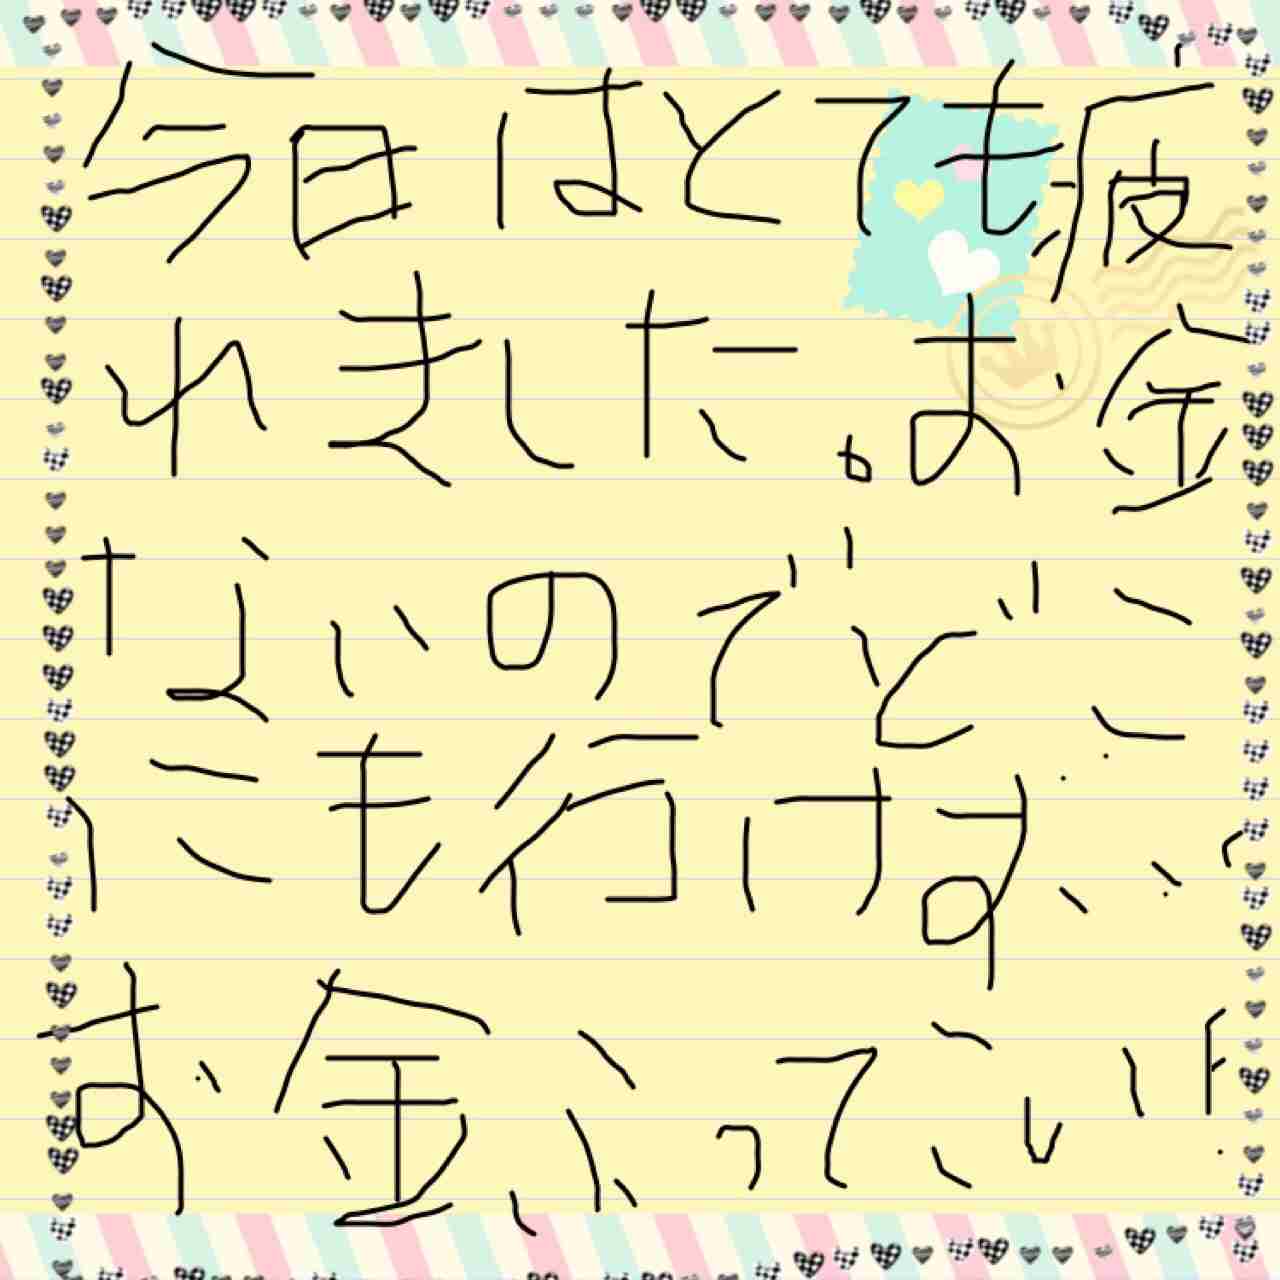 今日はとても疲
れました。お金
ないのでどこ
にも行けず、、
お金ふってこい